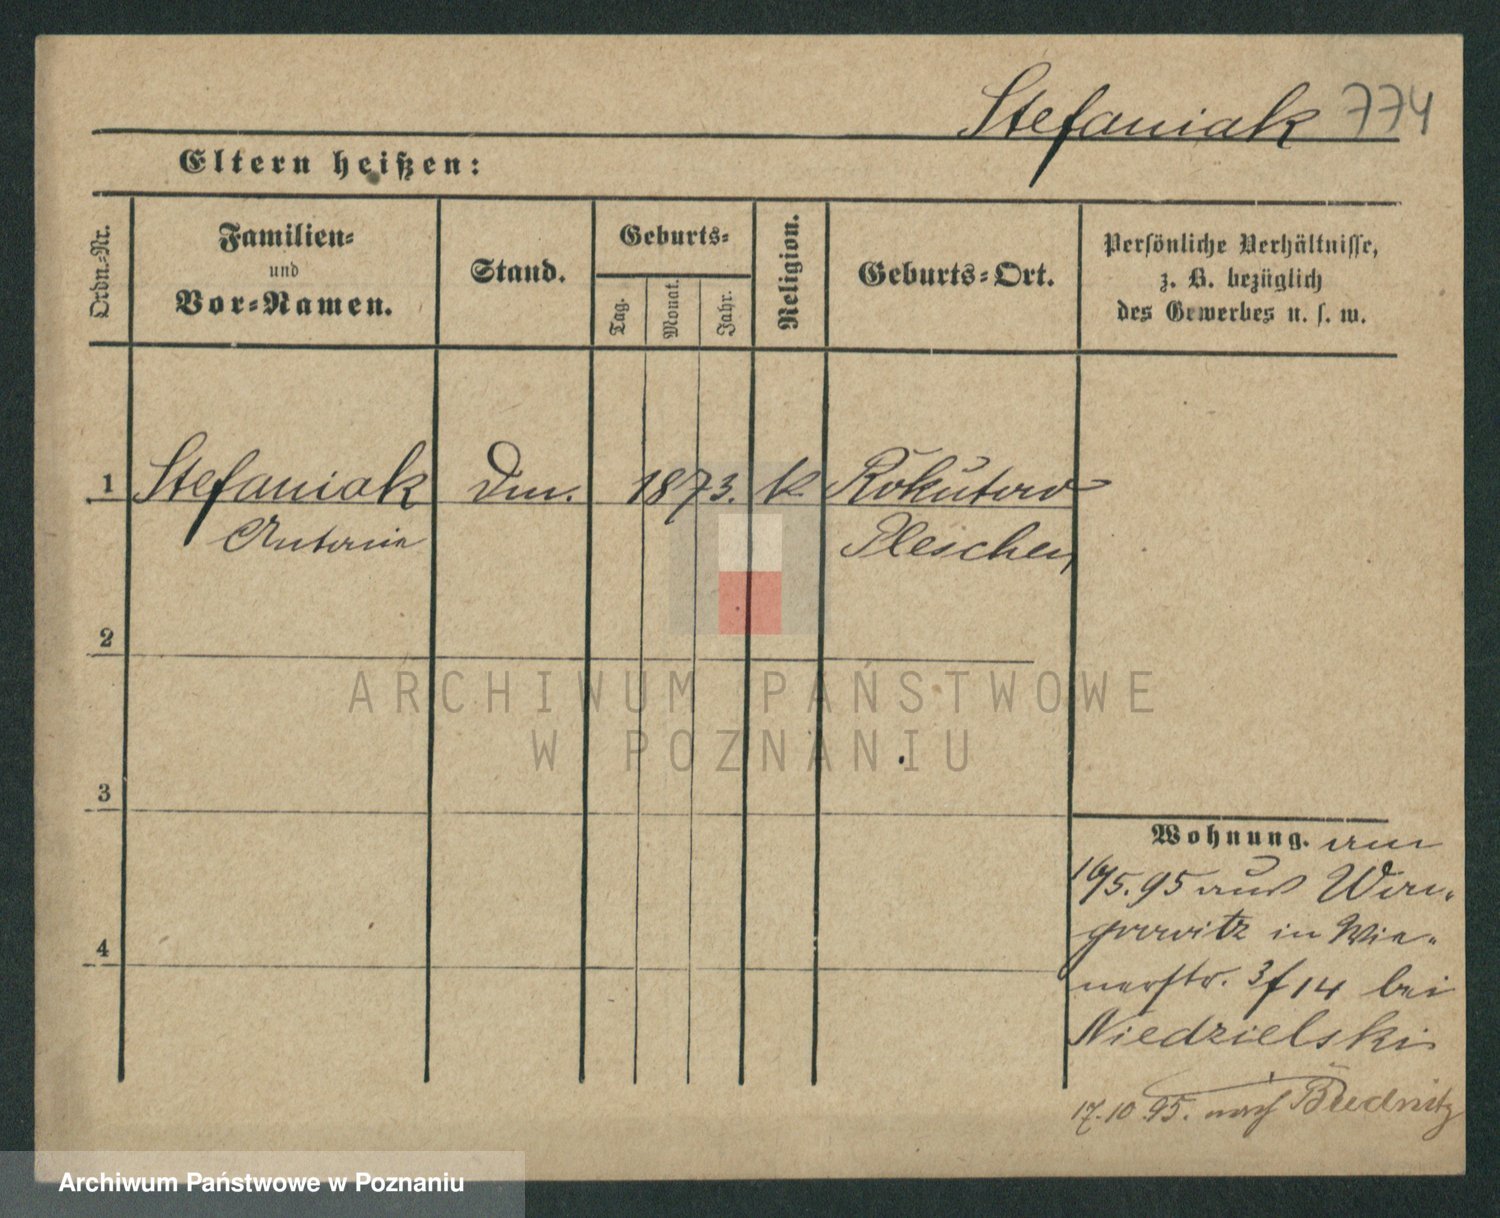 Stefaniak 774
Eltern heißen:
Ordn.-Nr.
Familien-
und
Vor-Namen.
Stand.
Geburts-
Tag.
Monat.
Jahr.
Religion.
Geburts-Ort.
Persönliche Verhältnisse,
z. B. bezüglich
des Gewerbes u. s. w.
1 Stefaniak Dm. 1873. k Rokutow
Antonie Pleschen
2
ARCHIWUM PAŃSTWOWE
W POZNANIU
3
Wohnung. am
16/5.95 aus Won-
growitz in Wie-
nerstr. 3/14 bei
Niedzielski
4
17.10 95. nach
Archiwum Państwowe w Poznaniu